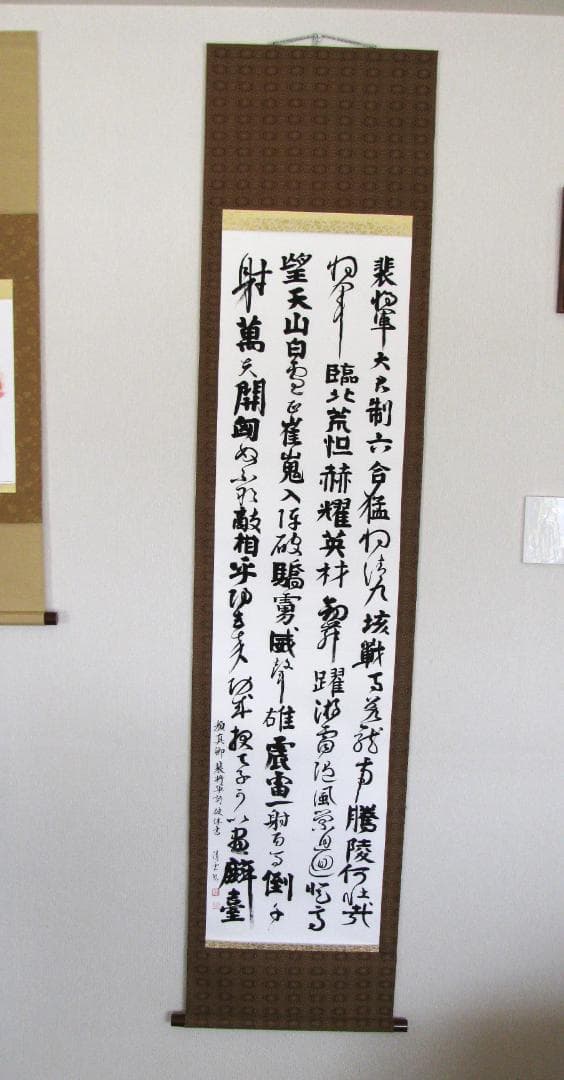 裴将軍大君制六合猛将清九垓戰馬若龍虎騰陵何壮哉
将軍臨北荒怛赫耀英材劍舞躍游雷随風縈且迴登高
望天山白雲正崔嵬入陣破驕虜威聲雄震雷一射百馬倒再
射萬夫開匈奴不敢敵相呼歸去来功成報天子可以畫麟臺
顔真卿 裴将軍詩 破体書